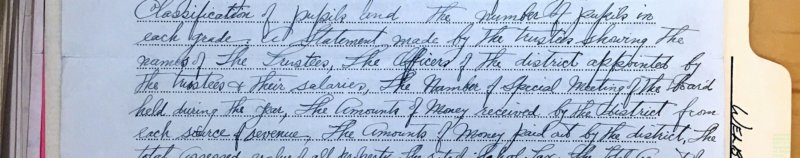 Classification of pupils and the number of pupils in
each grade. a statement made by the trustees showing the
names of The Trustees, The Officers of the district appointed by
the trustees & their salaries, The Number of Special Meeting of the Board
held during the year, The Amounts of Money received by the district from
each source of revenue, The Amounts of Money paid out by the district, The
total assessed